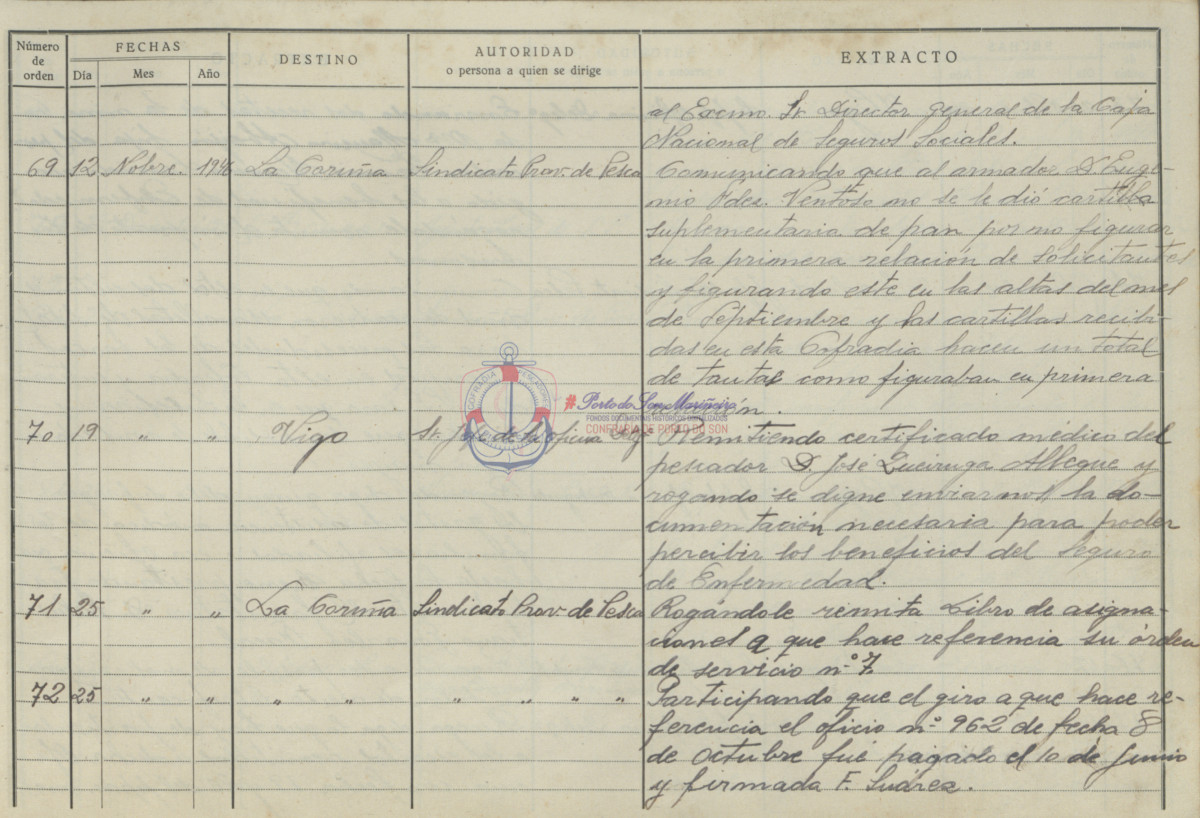 Número de orden
FECHAS
Día
Mes
Año
DESTINO
AUTORIDAD
o persona a quien se dirige
EXTRACTO
al Excmo. Sr. Director general de la Caja
Nacional de Seguros Sociales.
69 12 Nobre. 1946 La Coruña Sindicato Prov. de Pesca Comunicando que al armador D. Euge-
nio Fdez. Ventoso no se le dió cartilla
suplementaria de pan por no figurar
en la primera relación de solicitantes
y figurando este en las altas del mes
de Septiembre y las cartillas recibi-
das en esta Cofradia hacen un total
de tantas como figuraban en primera
COFRADIA PESCADORES
#PortodoSonMariñeiro
FONDOS DOCUMENTAIS HISTÓRICOS DIXITALIZADOS
CONFRARÍA DE PORTO DO SON
70 19 " " Vigo Sr. Jefe de la oficina Remitiendo certificado médico del
pescador D. José Queiruga Allegue y
rogando se digne enviarnos la do-
cumentación necesaria para poder
percibir los beneficios del Seguro
de Enfermedad.
71 25 " " La Coruña Sindicato Prov. de Pesca Rogándole remita Libro de asigna-
ciones a que hace referencia su órden
de servicio n.º 7.
72 25 " " " " " " " " Participando que el giro a que hace re-
ferencia el oficio n.º 962 de fecha 8
de Octubre fué pagado el 10 de Junio
y firmada F. Suárez.